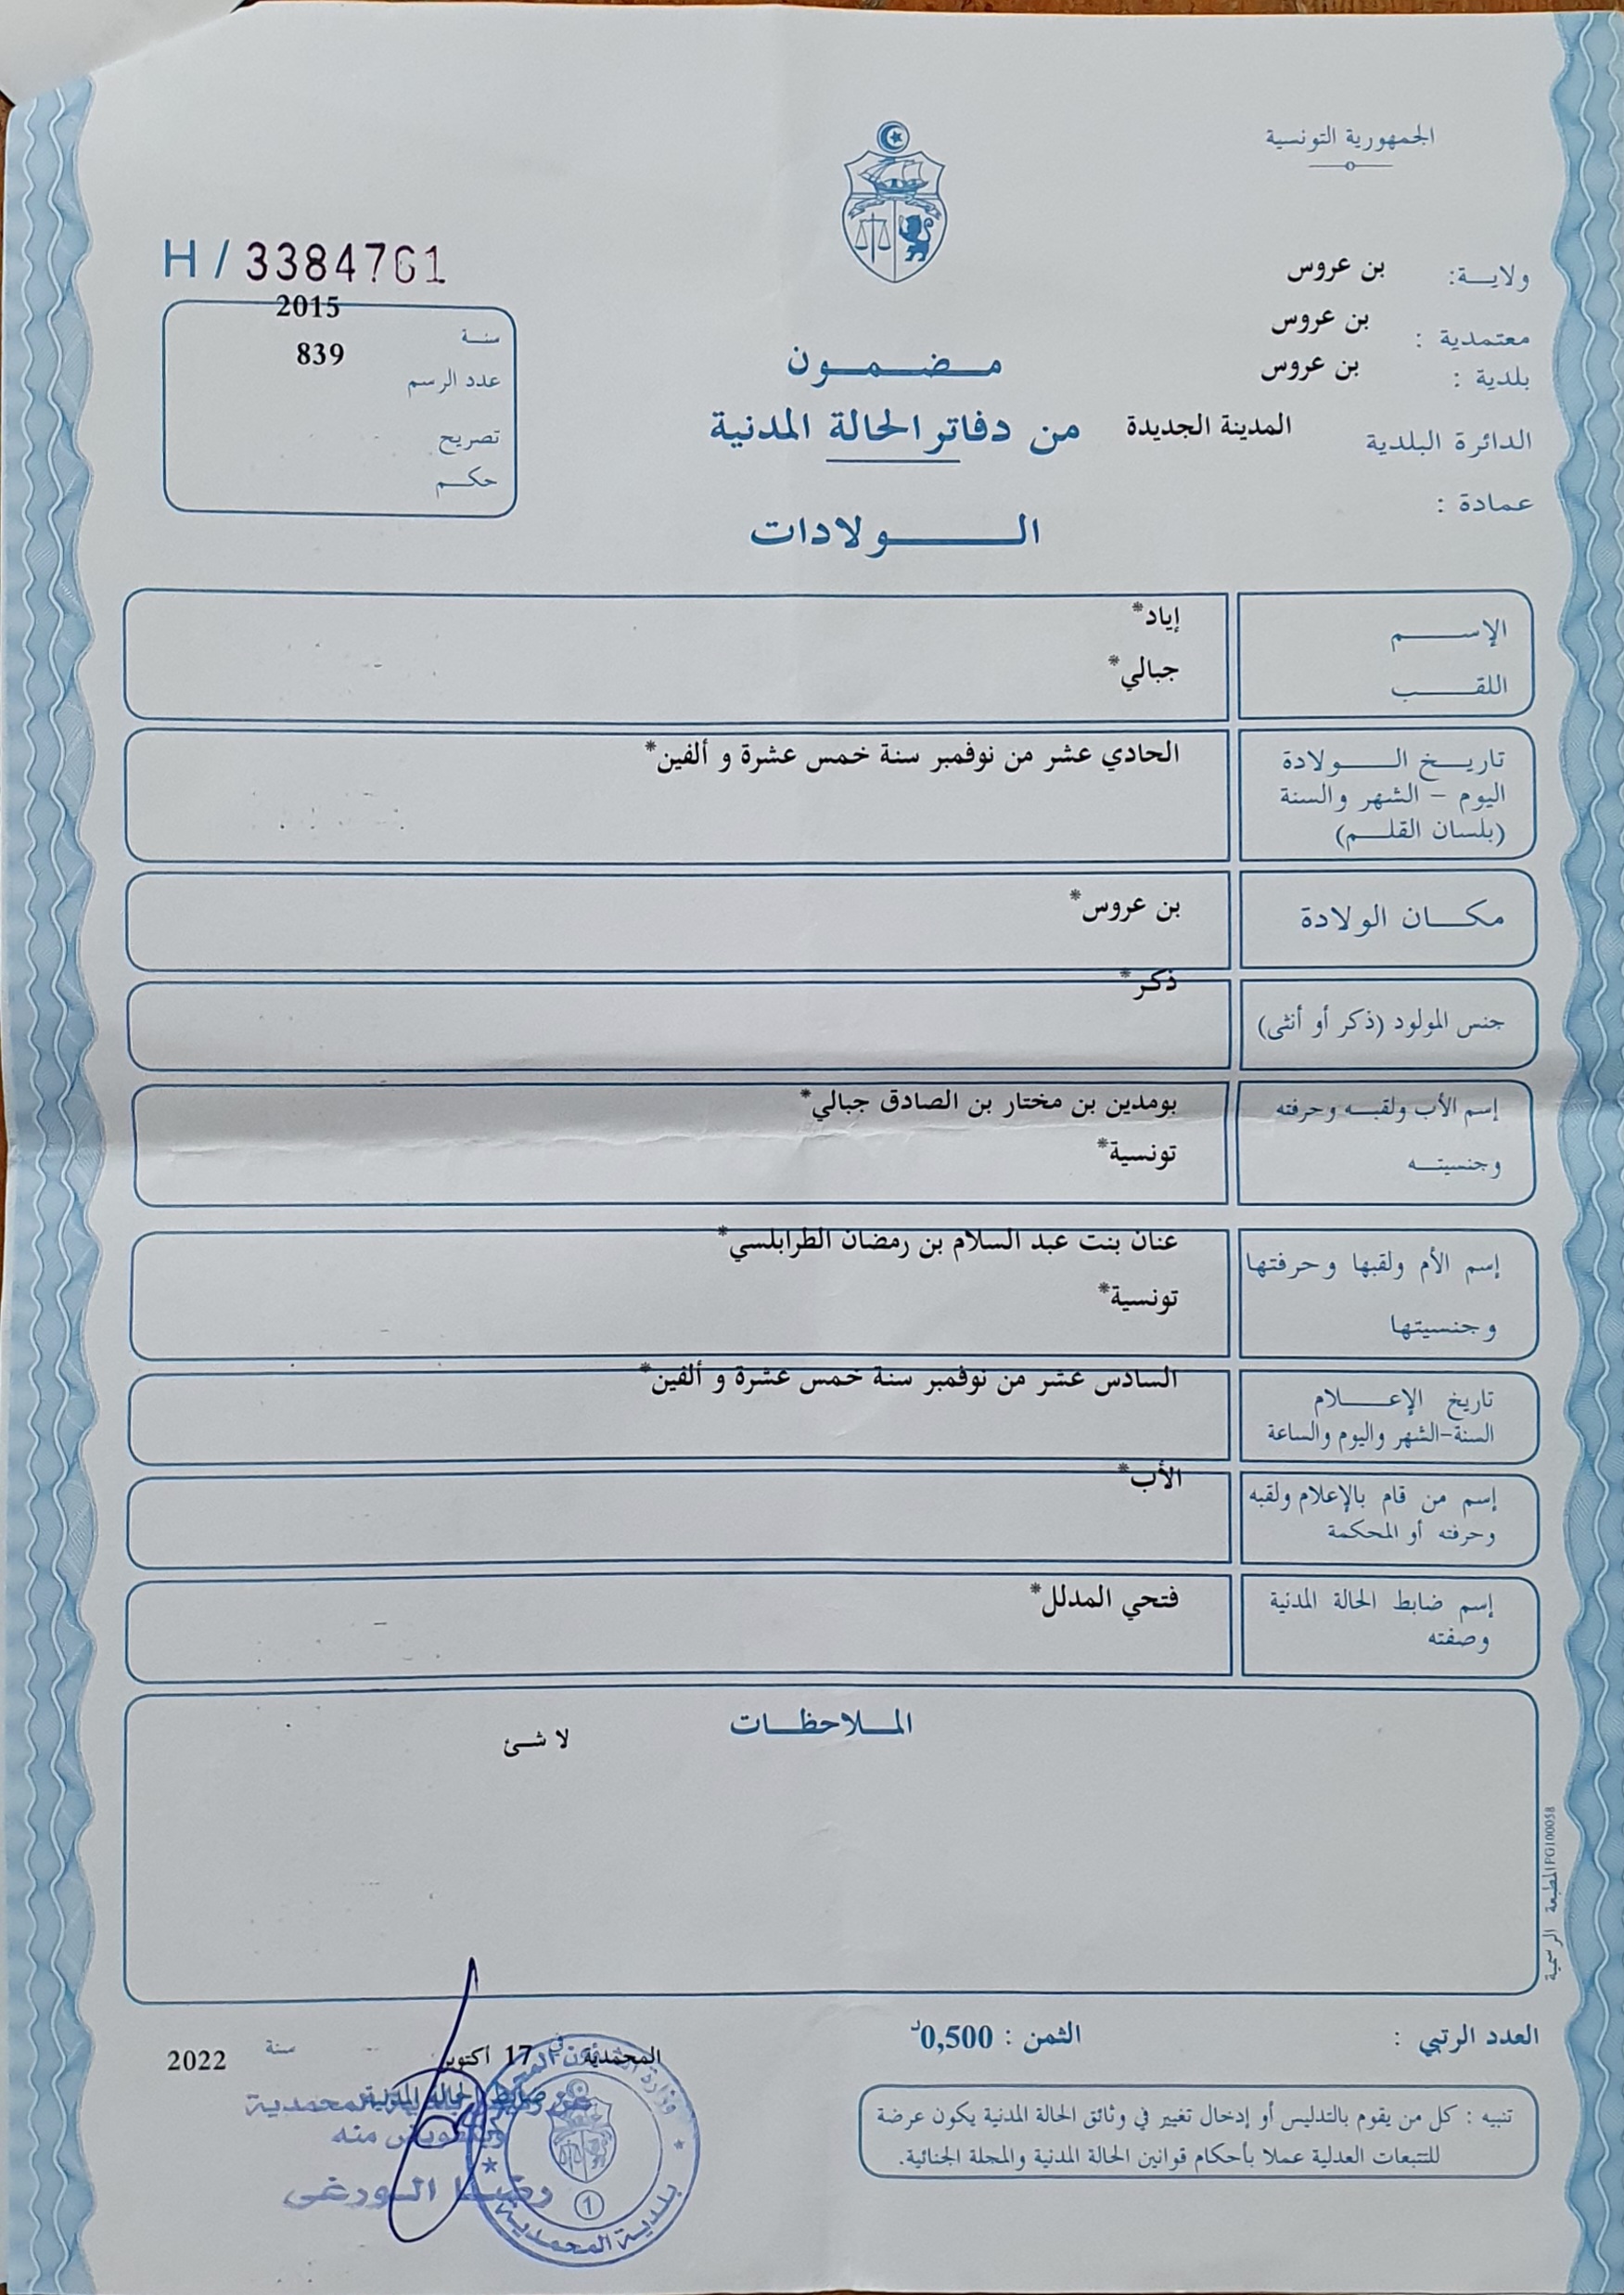 الجمهورية التونسية
ولايـــة: بن عروس
معتمدية : بن عروس
بلدية : بن عروس
الدائرة البلدية المدينة الجديدة
عمادة :
H / 3384761
سنـة 2015
عدد الرسم 839
تصريح
حكـم
مـضـمـون
من دفاتر الحالة المدنية
الـولادات
الإسـم إياد*
اللقـب جبالي*
تاريـخ الـولادة الحادي عشر من نوفمبر سنة خمس عشرة و ألفين*
اليوم - الشهر والسنة
(بلسان القلـم)
مكـان الولادة بن عروس*
جنس المولود (ذكر أو أنثى) ذكر*
إسم الأب ولقبـه وحرفته بومدين بن مختار بن الصادق جبالي*
وجنسيتـه تونسية*
إسم الأم ولقبها وحرفتها عنان بنت عبد السلام بن رمضان الطرابلسي*
وجنسيتها تونسية*
تاريخ الإعـلام السادس عشر من نوفمبر سنة خمس عشرة و ألفين*
السنة-الشهر واليوم والساعة
إسم من قام بالإعلام ولقبه الأب*
وحرفته أو المحكمة
إسم ضابط الحالة المدنية فتحي المدلل*
وصفته
المـلاحظـات
لا شئ
المطبعة الرسمية PG100058
العدد الرتبي :
الثمن : 0,500د
تنبيه : كل من يقوم بالتدليس أو إدخال تغيير في وثائق الحالة المدنية يكون عرضة
للتتبعات العدلية عملا بأحكام قوانين الحالة المدنية والمجلة الجنائية.
المحمدية في 17 أكتوبر سنة 2022
ضابط الحالة المدنية
المحمدية
وبتفويض منه
رضا الورغي
بلدية المحمدية
1